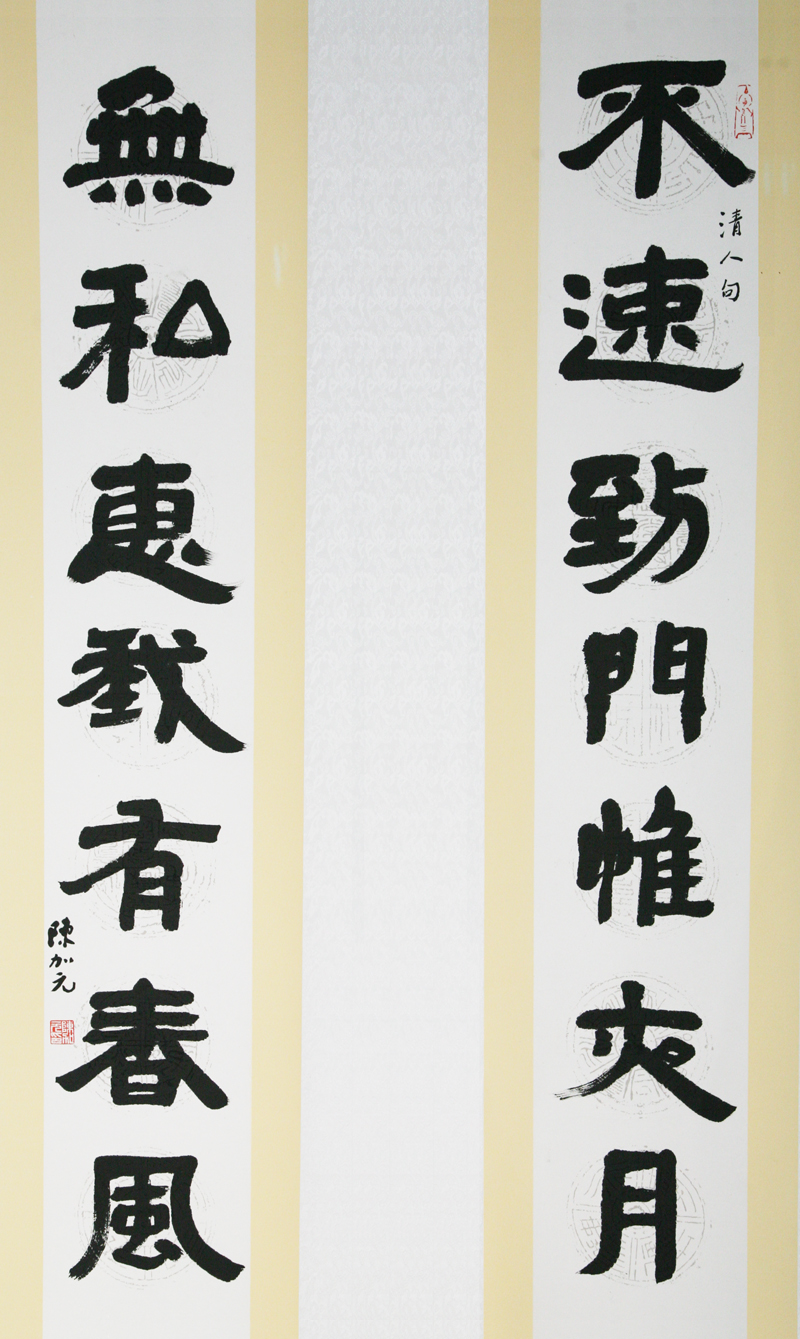 不速到門惟夜月
清人句
無私惠我有春風
陳加元